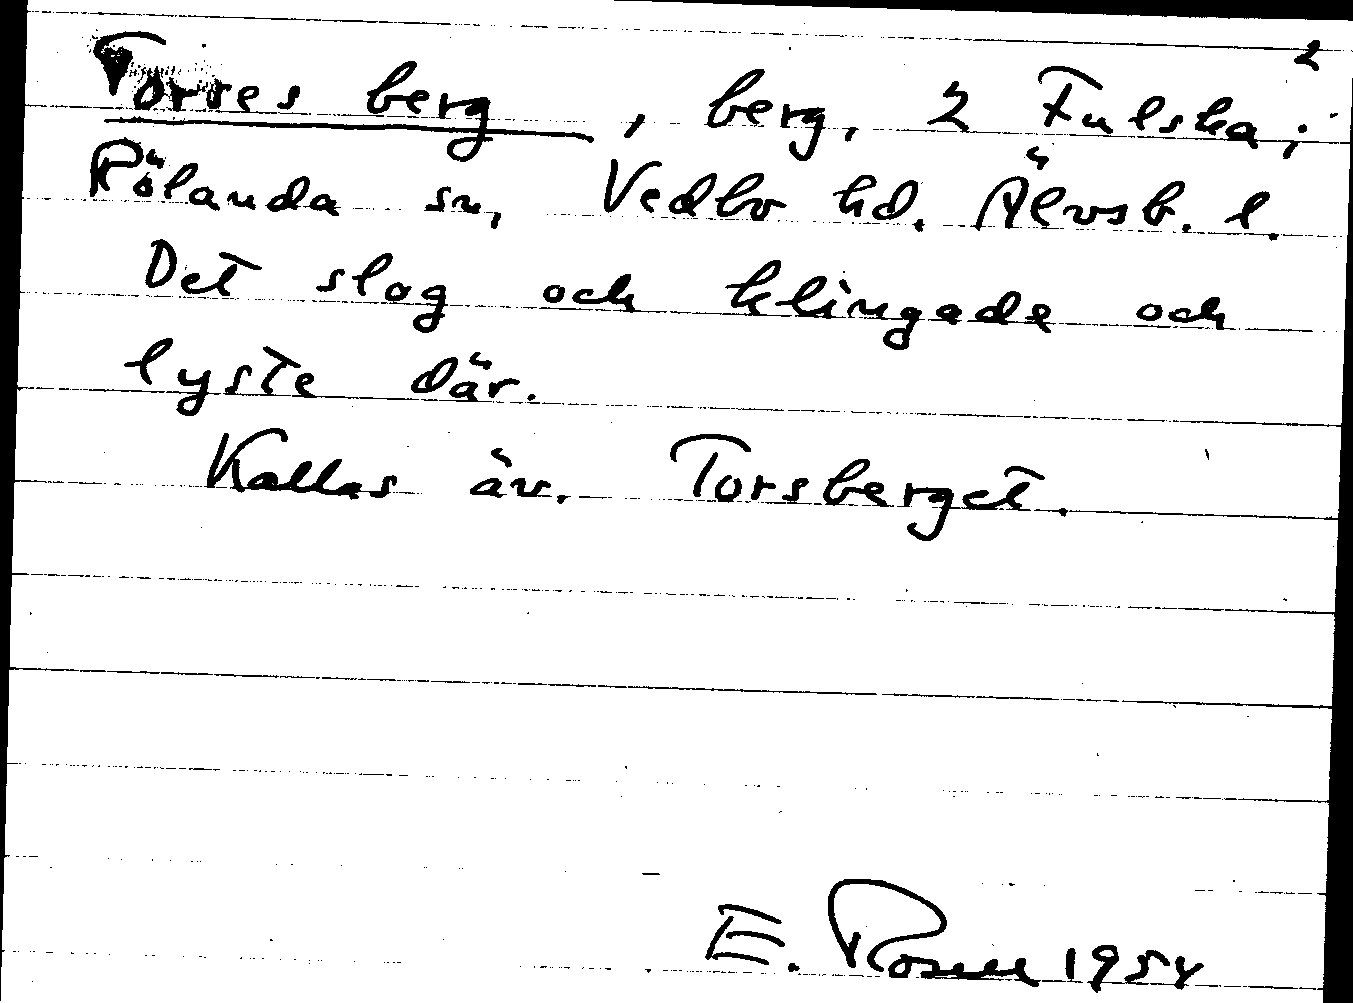 2
Torres berg, berg, 2 Fulska;
Rölanda sn, Vedbo hd. Älvsb. l.
Det slog och klingade och
lyste där.
Kallas äv. Torsberget.
E. Rosell 1954